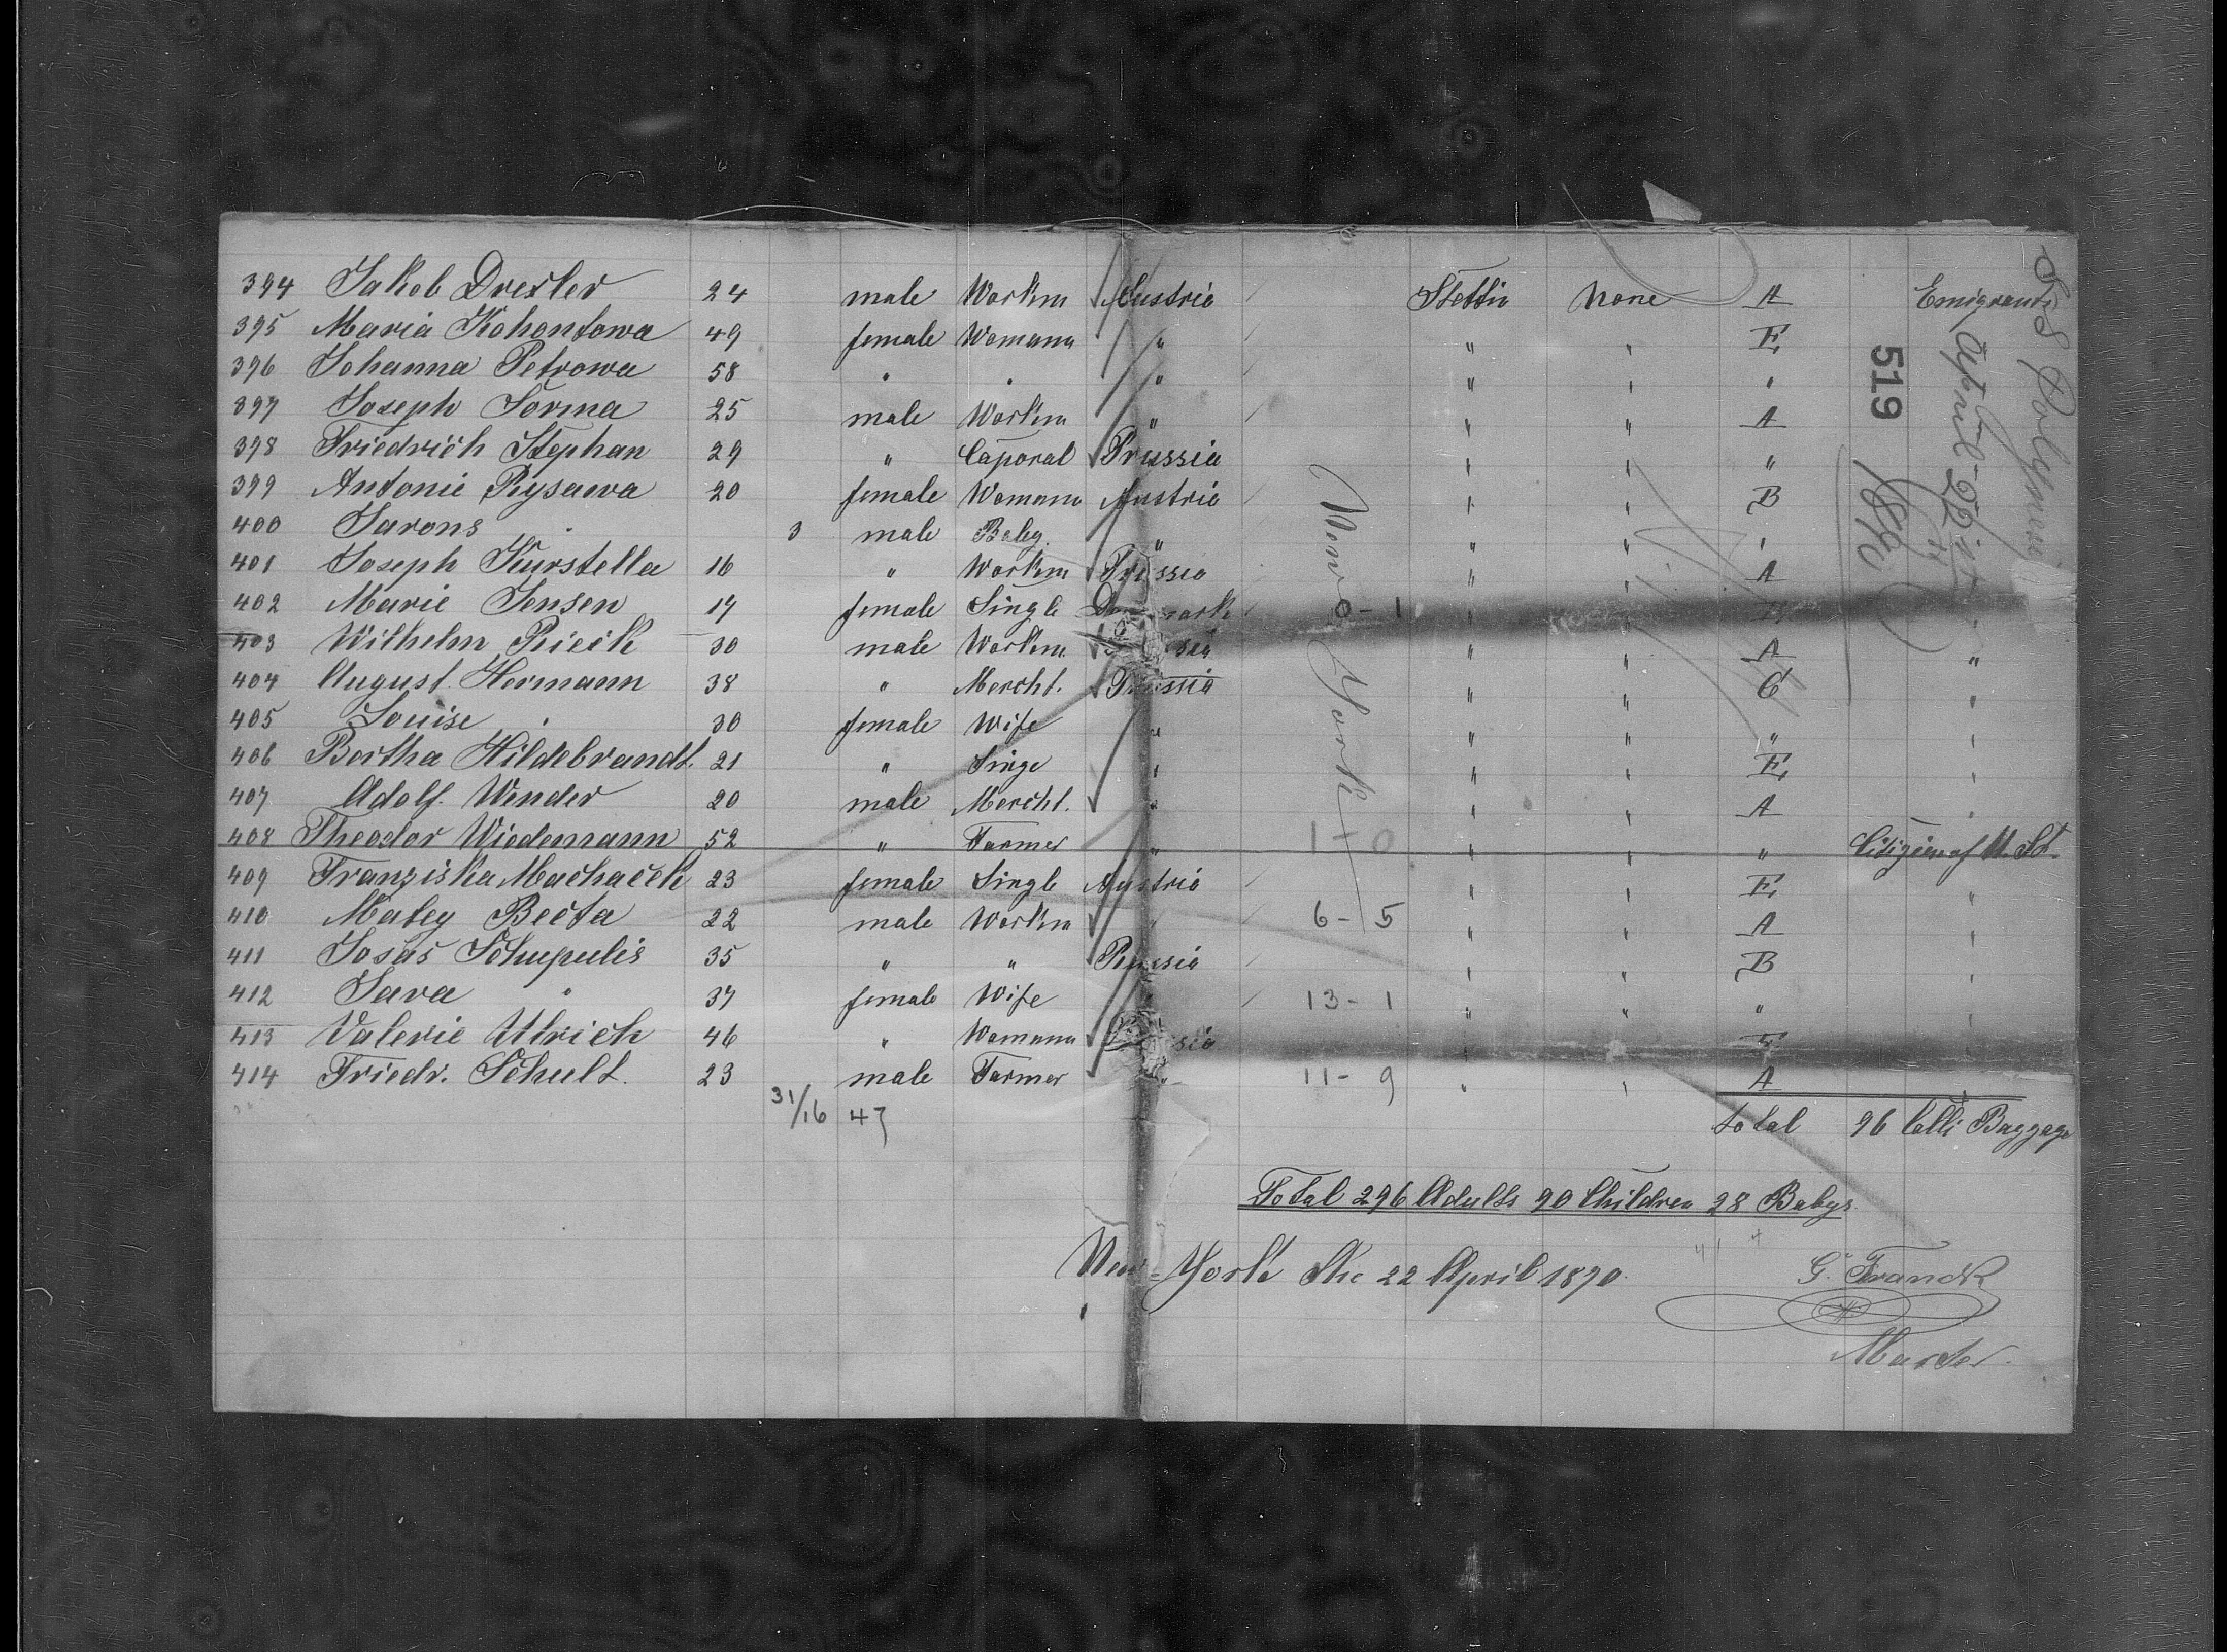 394 Jakob Drexler 24 male Workm Austria Stettin None A Emigrants
395 Maria Kohontowa 49 female Womann " " " E
396 Johanna Petrowa 58 " " " " " "
397 Joseph Forma 25 male Workm " " " A
398 Friedrich Stephan 29 " Caporal Prussia " " "
399 Antonie Rysawa 20 female Womann Austria " " B
400 Jarons " 3 male Baby " " " "
401 Joseph Kurstella 16 " Workm Prussia " " A
402 Marie Jensen 17 female Single " "
403 Wilhelm Rieck 30 male Workm " " A "
404 August Hermann 38 " Mercht. Prussia " " C "
405 Louise " 30 female Wife " " " " "
406 Bertha Hildebrandt 21 " Singe " " " E "
407 Adolf Wender 20 male Mercht. " " " A "
408 Theodor Wiedemann 52 " Farmer " 1-0 " " " Citizien of U. St.
409 Franziska Machacek 23 female Single Austria " " E "
410 Matey Becta 22 male Workm " 6-5 " " A "
411 Josas Schupulis 35 " " Prussia " " B "
412 Sara " 37 female Wife " 13-1 " " " "
413 Valerie Ulrich 46 " Womann " " E "
414 Friedr. Schult. 23 male Farmer " 11-9 " " A
31/16 47
New York
0-1
S S
April 22
1890
519
total 96 Colli Baggage
Total 296 Adults 90 Children 28 Babys
New=York the 22 April 1890.
G. Franck
Master.